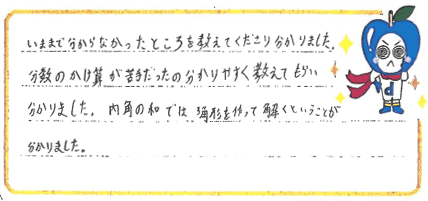 いままで分からなかったところを教えてくださり分かりました。
分数のかけ算が苦手だったの分かりやすく教えてもらい
分かりました。内角の和では角形を作って解くということが
分かりました。